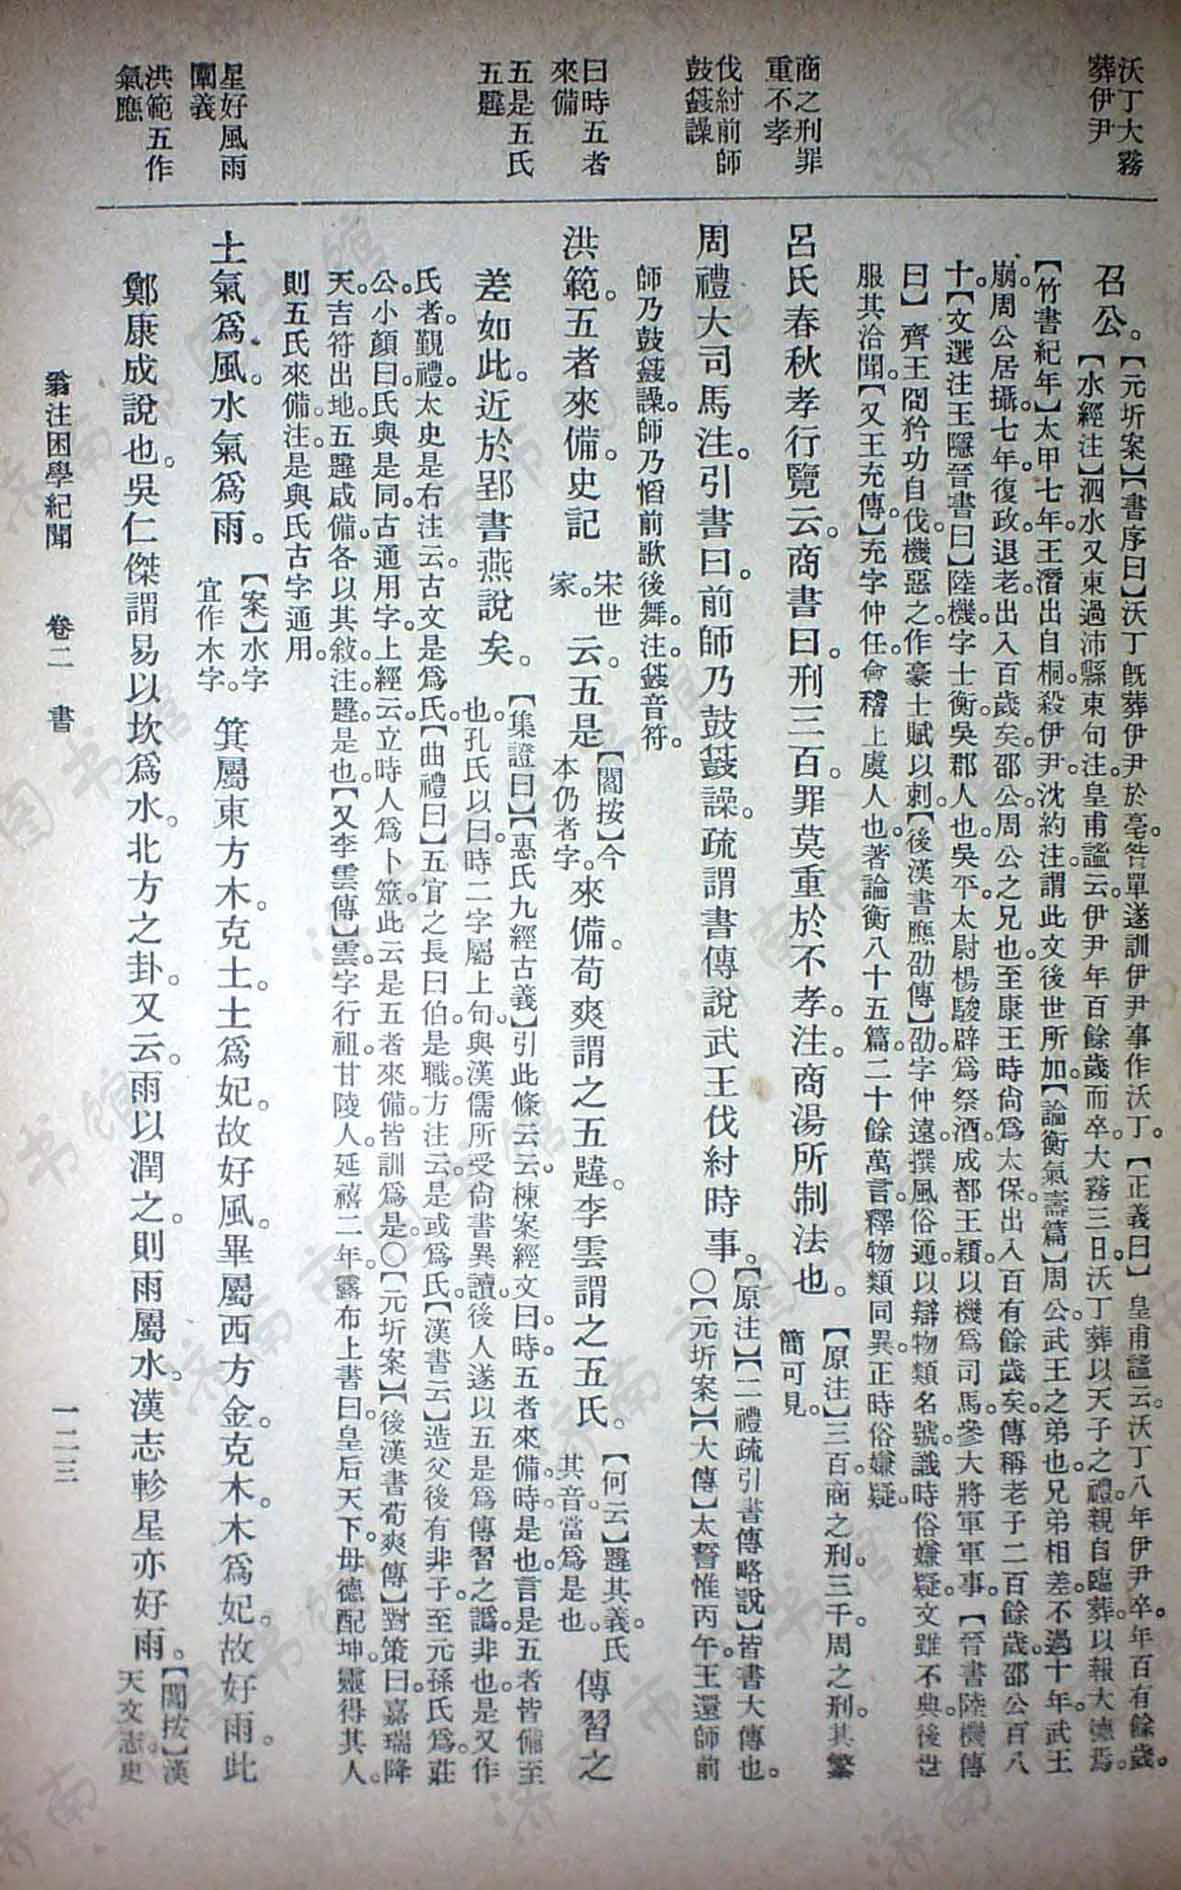 沃丁大霧
葬伊尹
商之刑罪
重不孝
伐紂前師
鼓鼜譟
曰時五者
來備
五是五氏
五韙
星好風雨
闡義
洪範五作
氣應
召公。【元圻案】【書序曰】沃丁旣葬伊尹於亳。咎單遂訓伊尹事作沃丁。【正義曰】皇甫謐云。沃丁八年伊尹卒。年百有餘歲。
【水經注】泗水又東過沛縣東句注。皇甫謐云。伊尹年百餘歲而卒。大霧三日。沃丁葬以天子之禮。親自臨葬。以報大德焉。
【竹書紀年】太甲七年。王潛出自桐。殺伊尹。沈約注。謂此文後世所加。【論衡氣壽篇】周公。武王之弟也。兄弟相差。不過十年。武王
崩。周公居攝。七年復政。退老。出入百歲矣。邵公。周公之兄也。至康王時尙爲太保。出入百有餘歲矣。傳稱老子二百餘歲。邵公百八
十。【文選注王隱晉書曰】陸機字士衡。吳郡人也。吳平。太尉楊駿辟爲祭酒。成都王穎以機爲司馬。參大將軍軍事。【晉書陸機傳
曰】齊王冏矜功自伐。機惡之。作豪士賦以刺。【後漢書應劭傳】劭字仲遠。撰風俗通。以辯物類名號。識時俗嫌疑。文雖不典。後世
服其洽聞。【又王充傳】充字仲任。會稽上虞人也。著論衡八十五篇。二十餘萬言。釋物類同異。正時俗嫌疑。
呂氏春秋孝行覽云。商書曰。刑三百。罪莫重於不孝。注。商湯所制法也。
【原注】三百。商之刑。三千。周之刑。其繁
簡可見。
周禮大司馬注。引書曰。前師乃鼓鼜譟。疏謂書傳說武王伐紂時事。
【原注】【二禮疏引書傳略說】皆書大傳也。
〇【元圻案】【大傳】太誓惟丙午。王還師前
師乃鼓鼜譟。師乃慆前歌後舞。注。鼜音符。
洪範。五者來備。史記
宋世
家。
云。五是
【閻按】今
本仍者字。
來備。荀爽謂之五韙。李雲謂之五氏。
【何云】韙其義。氏
其音。當爲是也。
傳習之
差如此。近於郢書燕說矣。
【集證曰】【惠氏九經古義】引此條云云。棟案經文。曰。時五者來備。時。是也。言是五者皆備至
也。孔氏以曰時二字屬上句。與漢儒所受尙書異讀。後人遂以五是爲傳習之譌。非也。是。又作
氏者。覲禮。太史是右注云。古文是爲氏。【曲禮曰】五官之長曰伯。是職方注云。是或爲氏。【漢書云】造父後有非子。至元孫氏爲莊
公。小顏曰。氏與是同。古通用字。上經云。立時人爲卜筮。此云是五者來備。皆訓爲是。〇【元圻案】【後漢書荀爽傳】對策曰。嘉瑞降
天。吉符出地。五韙咸備。各以其敍。注。韙。是也。【又李雲傳】雲字行祖。甘陵人。延禧二年。露布上書曰。皇后天下母。德配坤靈。得其人。
則五氏來備。注。是與氏古字通用。
土氣爲風。水氣爲雨。
【案】水字
宜作木字。
箕屬東方木。克土。土爲妃。故好風。畢屬西方金。克木。木爲妃。故好雨。此
鄭康成說也。吳仁傑謂易以坎爲水。北方之卦。又云。雨以潤之。則雨屬水。漢志軫星亦好雨。
【閻按】漢
天文志。史
翁注困學紀聞　卷二　書
一二三